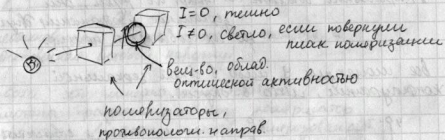 I=0, темно
I≠0, светло, если повернули
плоск поляризации
вещ-во, облад.
оптической активностью
поляризаторы,
противополож. направ.